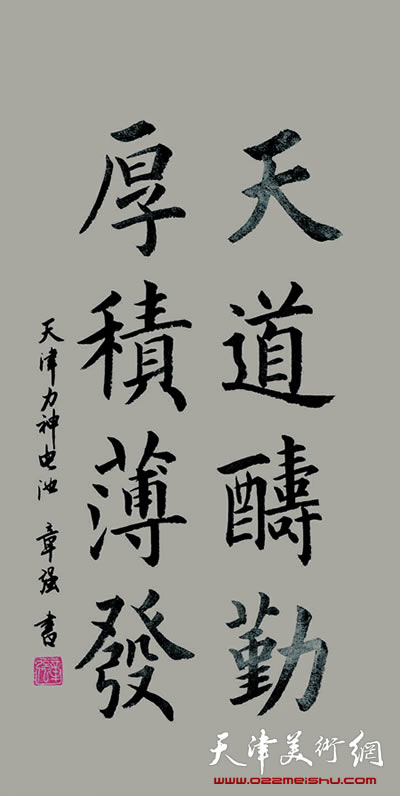 天道醻勤
厚積薄發
天津力神电池 章强 书
天津美術網
www.022meishu.com